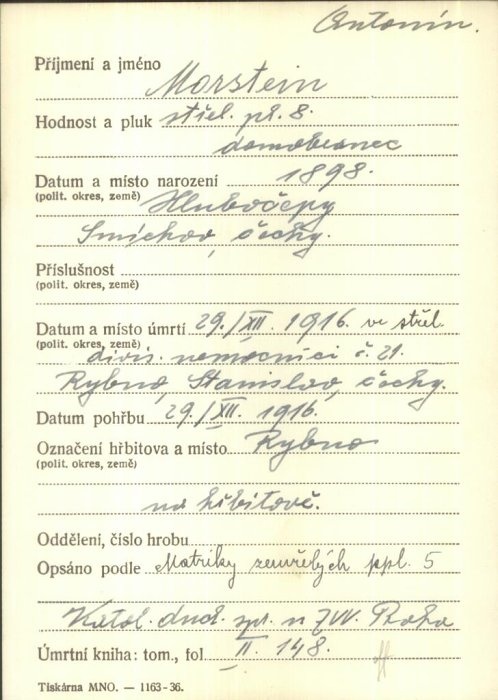 Antonín.
Příjmení a jméno Morstein
Hodnost a pluk střel. pl. 8.
domobranec
Datum a místo narození 1898.
(polit. okres, země) Hlubočepy
Smíchov, Čechy.
Příslušnost
(polit. okres, země)
Datum a místo úmrtí 29./XII. 1916. ve střel.
(polit. okres, země) divis. nemocnici č. 21.
Rybno, Stanislav, Čechy.
Datum pohřbu 29./XII. 1916.
Označení hřbitova a místo Rybno
(polit. okres, země)
na hřbitově.
Oddělení, číslo hrobu
Opsáno podle Matriky zemřelých ppl. 5
Katol. duch. spr. u ZVV. Praha
Úmrtní kniha: tom., fol II. 148.
Tiskárna MNO. — 1163-36.